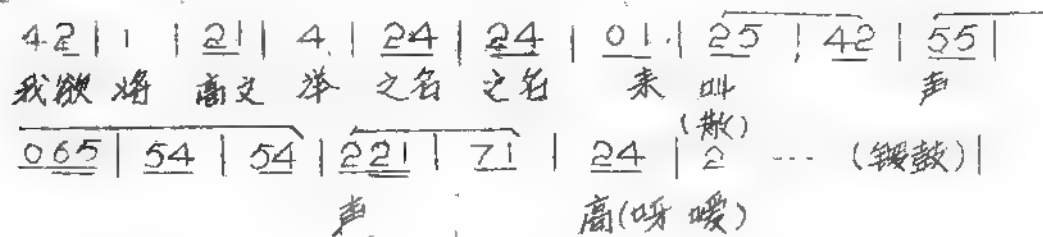 42 | 1 | 21 | 4. | 24 | 24 | 01. | 25 | 42 | 55 |
我欲 将 高文 举 之名 之名 来 叫 声
(散)
065 | 54 | 54 | 221 | 71 | 24 | 2 --- (锣鼓) |
声 高(呀 嗳)